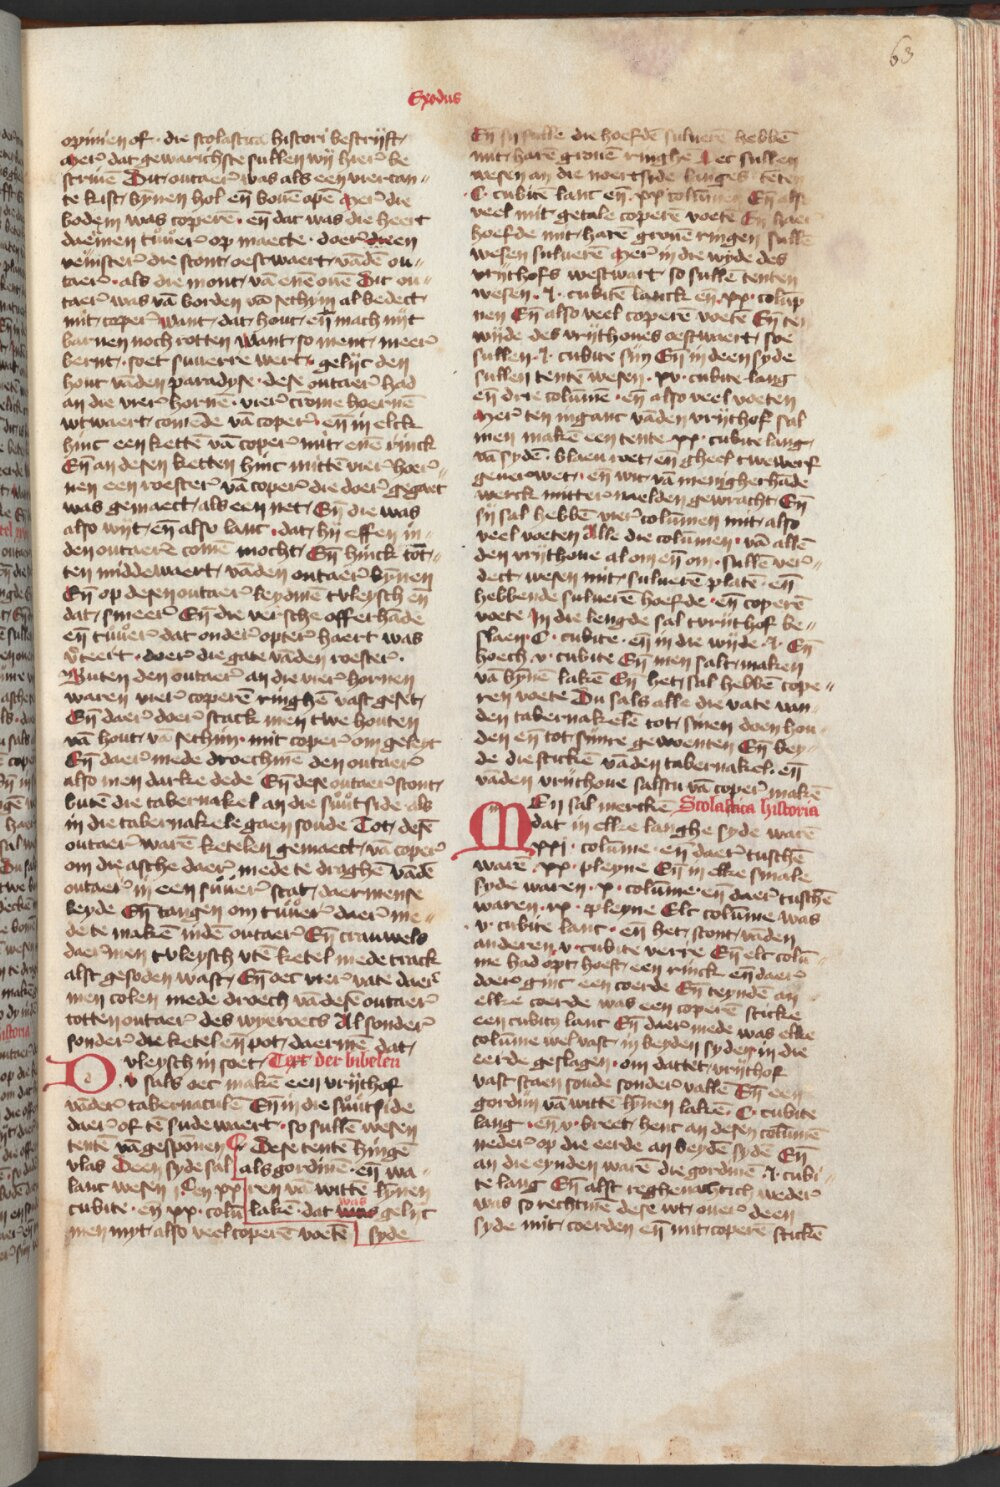 63
Exodus
opinien of · die scolastica histori bestrijft
Mer̉ dat gewarichste sullen wij hier̉ be
scriuen Dit outaer̉ was als een viercan⸗
te kist bȳnen hol en̄ bouē opē Mer̉ die
bodem was coperē · en̄ dat was die heert
daemen tuͦuer̉ op maecte · doer̉ die en
veinster̉ die stont oestwaert vādē ou⸗
taer̉ · als die mont vā enē ouē Dit ou⸗
taer̉ was vā borden vā sethym al bedect
mit coper̉ Want dat hout en̄ mach nijt
barnen noch rotten Want so ment meer̉
bernt · soet suuerre wert · gelijc den
hout vāden paradyse · dese outaer̉ had
an die vier̉ hornē · vier̉ crome hoernē
wtwaert comēde vā coper̉ · en̄ in elck
hinc een kettē vā coper̉ mit enē rinck
En̄ an desen ketten hinc mittē vier̉ hoer̉⸗
nen een roester̉ vā coper̉ die doer̉ gegaet
was gemaect als een net En̄ die was
also wijt en̄ also lanc · dat hij effen in⸗
den outaerē comē mocht En̄ hinck tot⸗
ten middewaert vāden outaer̉ bȳnen
En̄ op desen outaer̉ leydmē tvleysch en̄
dat smeer̉ En̄ die versche offerhāde
en̄ tuͦuer̉ dat onder̉ opter̉ haert was
v̉teert · doer̉ die gate vāden roester̉ ·
Buten den outaer̉ an die vier̉ hornen
waren vier̉ coperē ringhē vast geset
En̄ daer̉ doer̉ stack men twe houten
vā hout vā sethim · mit coper̉ om geleyt
En̄ daer̉ mede droechmē den outaer̉
also men darke dede En̄ dese outaer̉ stont
butē die tabernakel an die suͦutside als
in die tabernakele gaen soude Tot desē
outaer̉ warē ketelen gemaect vā coper̉
om die asche daer̉ mede te draghē vādē
outaer̉ in een suͦuer̉ stat daermense
leyde En̄ tangen om tuͦuer̉ daer̉ me⸗
de te makē indē outaer̉ En̄ crauwels
daer̉ men tvleysch vtē ketel mede track
alst gesoden wast En̄ oec vier̉ vate daer̉
men colen mede droech vā desē outaer̉
totten outaer̉ des wyeroecs Al sonder̉
sonder̉ die ketel en̄ pot daermē dat
vleysch in soet Text der bibelen
Du sals oec makē een vrijthof
vādet̉ tabernaculē En̄ in die suͦutside
daer̉ of tē sudewaert · so sullē wesen
tentē vā gesponen
vlas Deen syde sal
lanc wesen · Cen xx
cubite · en̄ xx · colū
men myt also veel coperē voetē
Dese tentē hingē
als gordinē · en̄ wa⸗
ren vā wittē lȳnen
was
lakē · dat was gelijc
syde
En̄ sij sulle die hoefdē suluerē hebbē
mit harē grouē ringhē Oec sullen
wesen an die noertsyde linges tētē
· C · cubitē lanc en̄ · xx · colūmen En̄ also
veel mit getale coperē voetē En̄ haer̉
hoefde mit harē grouē ringen sullē
wesen suluerē Mer̉ in die wyde des
vrijthofs westwart so sullē tenten
wesen · L · cubitē lanck en̄ · xx · colūp
nen En̄ also veel coperē voetē En̄ ten
wijde des vrijthoues oestwaert soe
sullen · L · cubite sijn En̄ in deen syde
sullen tentē wesen · xv · cubite lang
en̄ drie colūme · en̄ also veel voeten
Mer̉ ten inganc vāden vrijthof sal
men makē een tente · xx · cubite lang
vā sydē · blaeu roet en̄ gheel twewerf
geuerwet · en̄ wit vā menigherhāde
werck mitter naelden gewracht En̄
sij sal hebbē vier̉ colūmen mit also
veel voeten Alle die colūmen · vā allē
den vrijthoue al om en̄ om · sullē ver̉⸗
dect wesen mit suluerē platē · en̄
hebbende suluerē hoefde · en̄ coperē
voete In die lengde sal tvrijthof be⸗
slaen · C · cubite · en̄ in die wijde · L · En̄
hoech · v · cubite En̄ men salt maken
vā bȳnē lakē En̄ het sal hebbē cope⸗
ren voete Du sals alle die vate van⸗
den tabernakelē tot sinen doen hou⸗
den en̄ tot sinre gewenten En̄ bey⸗
de die stickē vāden tabernakel · en̄
vāden vrijthoue salstu vā coper̉ makē
MEn sal merckē Scolastica historia
dat in elke langhe syde warē
xxi · colūme · en̄ daer̉ tuschē
warē · xx · pleyne En̄ in elke smale
syde waren · x · colūme · en̄ daer̉ tuschē
waren · ix · pleyne Elc colūme was
· v · cubite lanc · en het stont vāden
anderen · v · cubite verre En̄ elc colū⸗
me had opt hoeft een rinck en̄ daer̉
doer̉ ginc een coerde En̄ teyndē an
elke coerde was een coperē sticke
een cubitꝰ lanc En̄ daer̉ mede was elke
colūme wel vast in beyden syden in die
eerde geslagen · om dattet vrijthof
vast staen soude sonder̉ vallē En̄ een
gordijn vā wittē lȳnen lakē · C · cubite
lang · en̄ v · breet henc an desen colūmē
neder̉ op die eerde an beydē sydē En̄
an die eynden warē die gordinē · L · cubi⸗
te lang En̄ alst reghenachtich weder̉
was so rechtmē dese wt ouer̉ deen
syde mit coerden en̄ mit coperē stickē